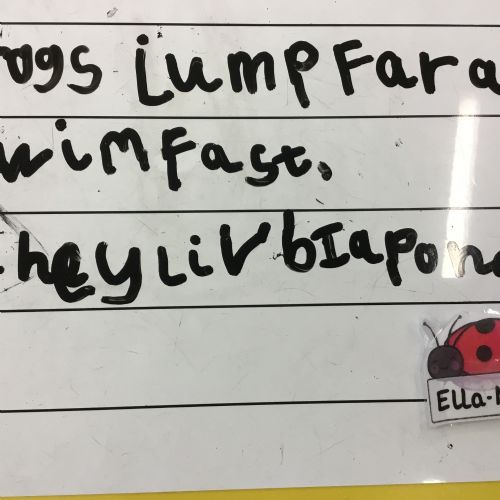 ogs jump Far a
wim Fast.
they Liv bIaPond
Ella-